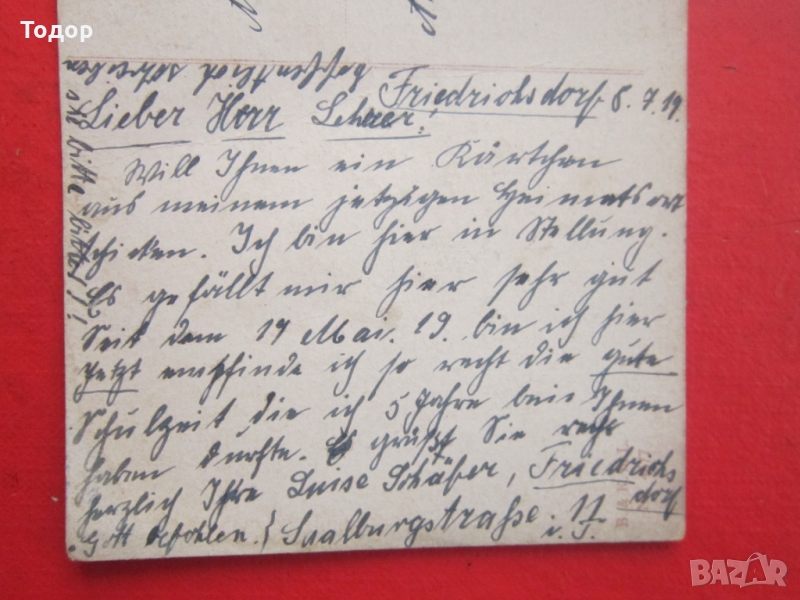 Todor
Friedrichsdorf 8.7.19.
Lieber Herr Lehrer!
Will Ihnen ein Kärtchen
aus meinem jetzigen Heimatsort
schicken. Ich bin hier in Stellung.
Es gefällt mir hier sehr gut
Seit dem 17 Mai. 19. bin ich hier
Jetzt empfinde ich so recht die gute
Schulzeit die ich 5 Jahre beie Ihnen
haben durfte. Es grüßt Sie recht
herzlich Ihre Luise Schäfer, Friedrichs
dorf
Gott befohlen. Saalburgstraße 17
i. T.
bitte bitte!!
BAZAR